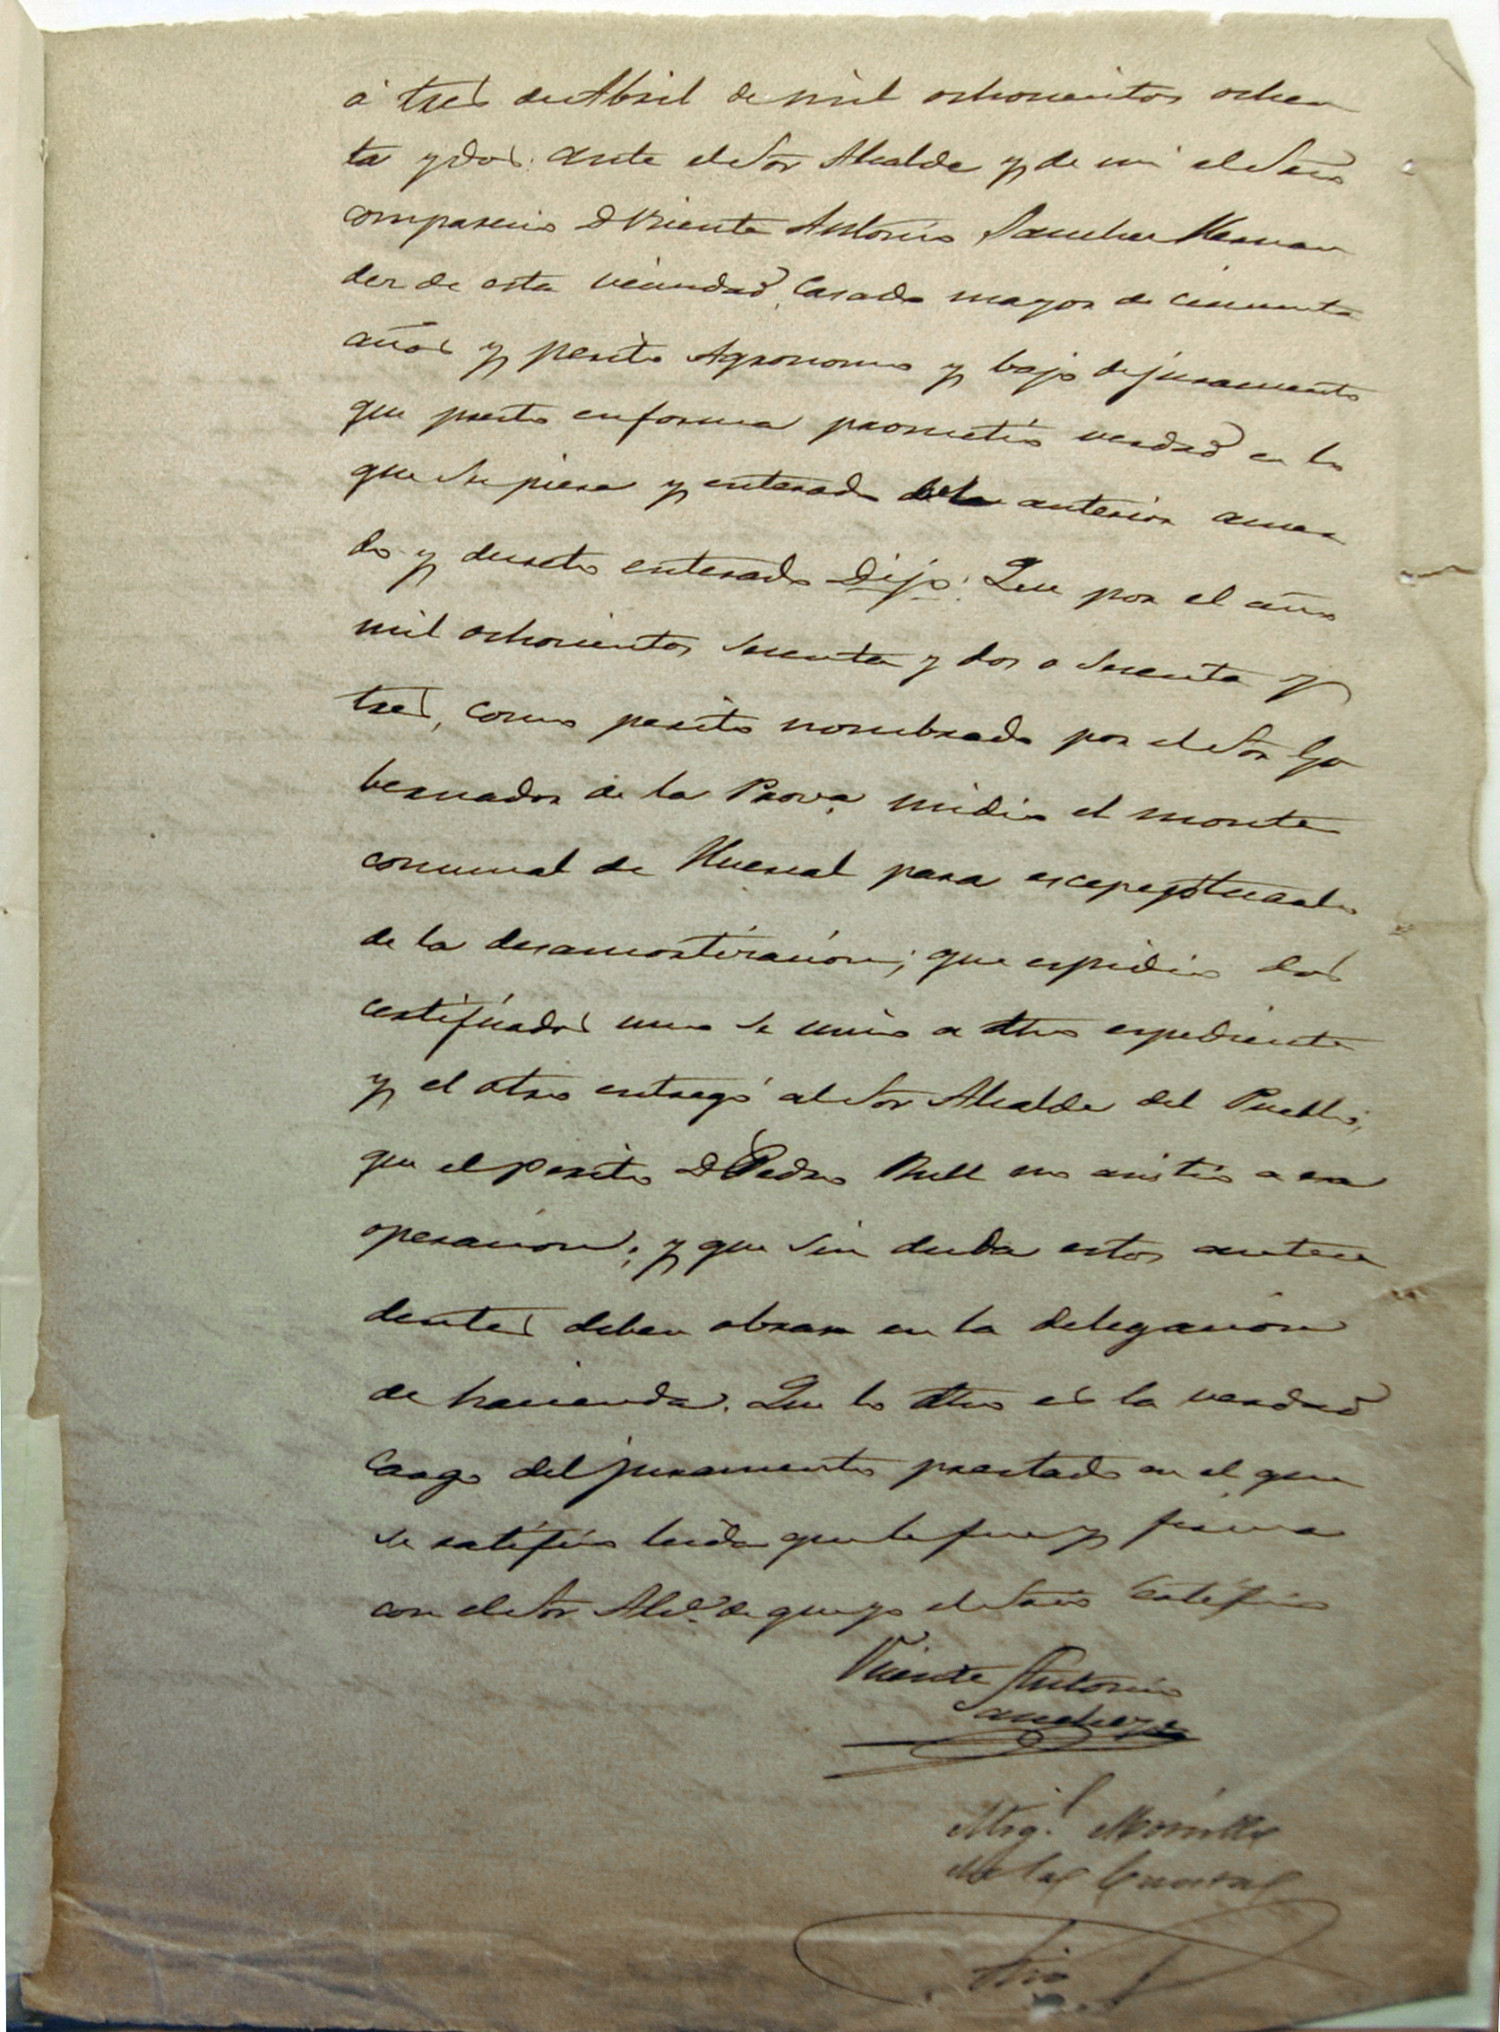 á tres de Abril de mil ochocientos ochen
ta y dos. ante el Sor Alcalde y de mi el Srio
comparecio D Vicente Antonio Sanchez Hernan
dez de esta vecindad, Casado mayor de cincuenta
años y perito Agronomo y bajo de juramento
que presto en forma prometió verdad en lo
que supiere y enterado de la anterior acuer
do y decreto enterado Dijo: Que por el año
mil ochocientos secenta y dos o secenta y
tres, como perito nombrado por el Sor Go
bernador de la Prova midio el monte
comunal de Huercal para
de la desamortizacion; que espidio dos
certificados uno se unio a dho expediente
y el otro entregó al Sor Alcalde del Pueblo;
que el perito D Pedro Rull no asistio a esa
operacion; y que sin duda estos antece
dentes deben obrar en la delegacion
de hacienda. Que lo dho es la verdad
cargo del juramento prestado en el que
se ratificó leida que le fue y firma
con el Sor Alce. de que yo el Srio Certifico
Vicente Antonio
Sanchez
Migl. Morcillo
de las Cuevas
Srio